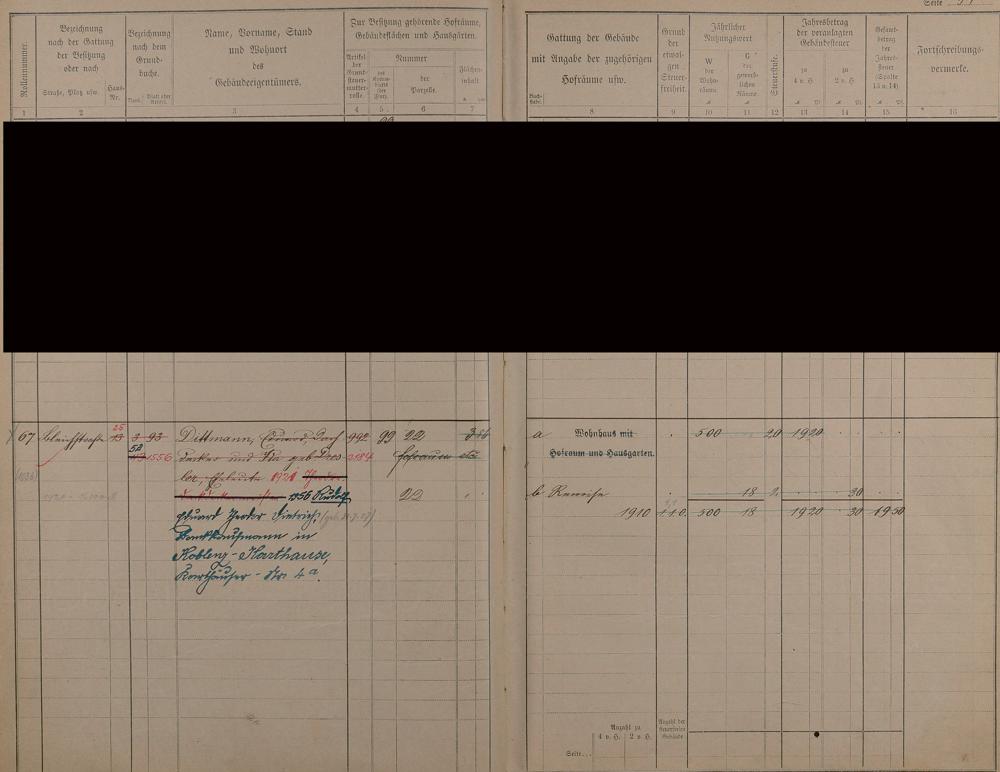 Seite
Rollennummer.
Bezeichnung
nach der Gattung
der Besitzung
oder nach
Straße, Platz usw.
Haus-
Nr.
Bezeichnung
nach dem
Grund-
buche.
Band. Blatt oder
Artikel.
Name, Vorname, Stand
und Wohnort
des
Gebäudeeigentümers.
Zur Besitzung gehörende Hofräume,
Gebäudeflächen und Hausgärten.
Artikel
der
Grund-
steuer-
mutter-
rolle.
Nummer
des
der
Parzelle.
Flächen-
inhalt
1 2 3 4 5 6 7
67 Bleichstraße 13 25
3 93
52
1556
Dittmann, Eduard, Dach
decker und
geb.
Eheleute 1921
1956 Rudolf
Eduard Theodor Dietrich,
Bankkaufmann in
Koblenz-Karthause,
Karthäuser-Str. 4a.
992 99 22
2184 Hofraum
22
Gattung der Gebäude
mit Angabe der zugehörigen
Hofräume usw.
Buch-
stabe.
Grund
der
etwai-
gen
Steuer-
freiheit.
Jährlicher
Nutzungswert
W
der
Wohn-
räume
G
der
gewerb-
lichen
Räume
Steuerstufe.
Jahresbetrag
der veranlagten
Gebäudesteuer
zu
4 v. H.
zu
2 v. H.
Gesamt-
betrag
der
Jahres-
steuer
(Spalte
13 u. 14)
Fortschreibungs-
vermerke.
8 9 10 11 12 13 14 15 16
a Wohnhaus mit 500 20 1920
Hofraum und Hausgarten.
b Remise 18 2 30
1910 500 18 1920 30 1950
Anzahl zu
4 v. H. 2 v. H.
Anzahl der
steuerfreien
Gebäude
Seite...